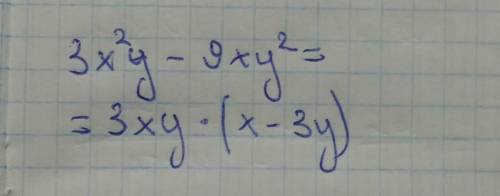 3x²y - 9xy² =
= 3xy · (x - 3y)